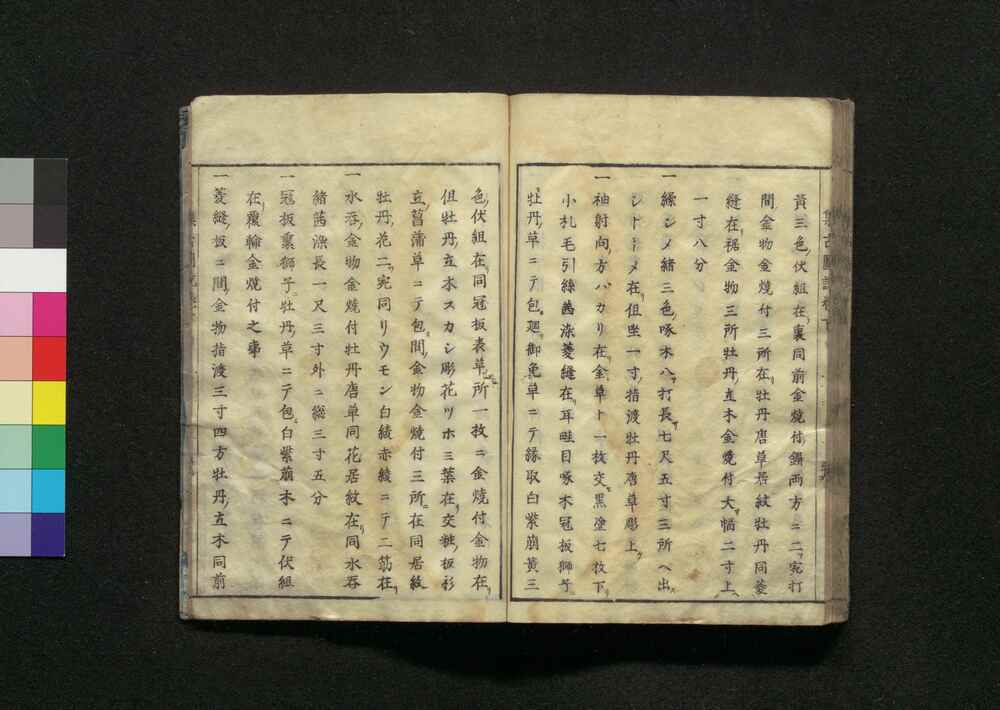 黄三色伏組在裏同前金焼付鋲両方ニ二宛打
間金物金焼付三所在牡丹唐草居紋牡丹同菱
縫在裾金物三所牡丹立木金焼付大幅二寸上
一寸八分
一繰シメ緒三色啄木八打長七尺五寸三所ヘ出
シトメ在但坐一寸指渡牡丹唐草彫上
一袖射向方バカリ在金草ト一枚交黒塗七枚下
小札毛引線茜染菱縫在耳畦目啄木冠板獅子
牡丹草ニテ包廻御免草ニテ縁取白紫萠黄三
色伏組在同冠板表草所一枚ニ金焼付金物在
但牡丹立木スカシ彫花ツホミ葉在交粧板彩
立菖蒲草ニテ包間金物金焼付三所在同居紋
牡丹花二宛同リウモン白綾赤綾ニテ二筋在
一水呑金物金焼付牡丹唐草同花居紋在同水呑
緒茜染長一尺三寸外ニ総三寸五分
一冠板裏獅子牡丹草ニテ包白紫萠木ニテ伏組
在覆輪金焼付之事
一菱縫板ニ間金物指渡三寸四方牡丹立木同前